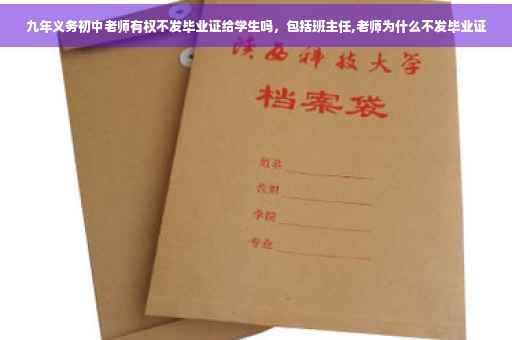 九年义务初中老师有权不发毕业证给学生吗，包括班主任,老师为什么不发毕业证
陕西科技大学
档案袋
姓名
性别
学院
专业